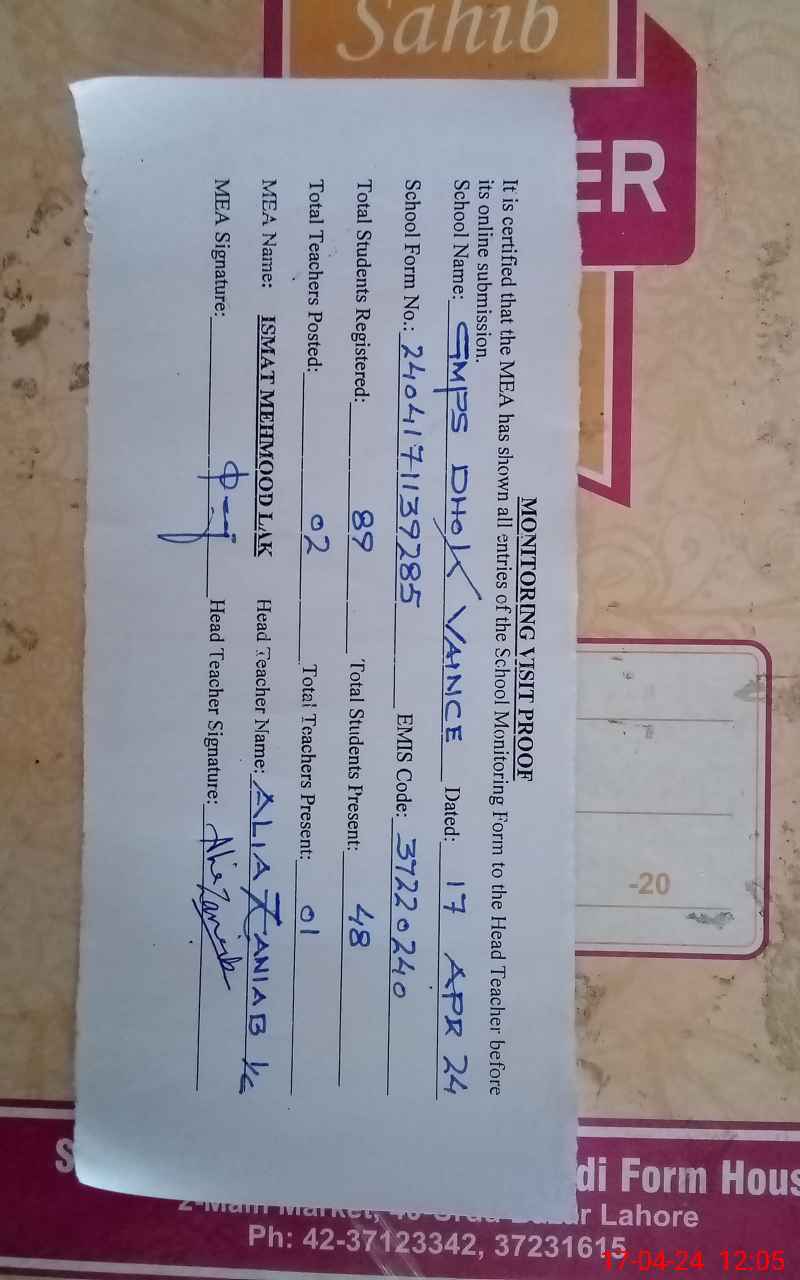 Sahib
ER
MONITORING VISIT PROOF
It is certified that the MEA has shown all entries of the School Monitoring Form to the Head Teacher before
its online submission.
School Name: GMPS DHOK VAINCE Dated: 17 APR 24
School Form No.: 2404171139285 EMIS Code: 37220240
Total Students Registered: 89 Total Students Present: 48
Total Teachers Posted: 02 Total Teachers Present: 01
MEA Name: ISMAT MEHMOOD LAK Head Teacher Name: ALIA ZANIAB
MEA Signature: Head Teacher Signature: Alia Zaniab
-20
di Form Hous
2-Main Market, Lahore
Ph: 42-37123342, 37231615
17-04-24 12:05